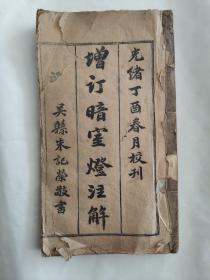 光緒丁酉春月校刊
增订暗室燈注解
吴縣朱記榮敬書